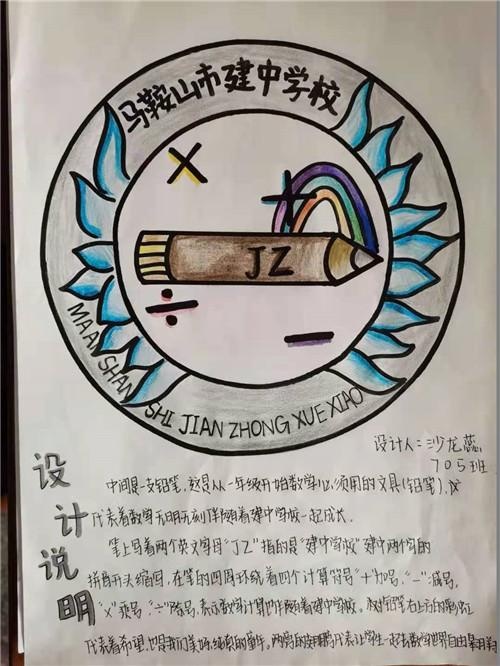 马鞍山市建中学校
JZ
MAANSHAN SHI JIAN ZHONG XUE XIAO
设计人:沙龙蕊
705班
设计说明
中间是一支铅笔,这是从一年级开始数学必须用的文具(铅笔),
代表着数学无时无刻伴随着建中学校一起成长。
笔上写着两个英文字母"JZ"指的是"建中学校"建中两个字的
拼音开头缩写,在笔的四周环绕着四个计算符号"+"加号,"-"减号,
"×"乘号,"÷"除号,表示数学计算也伴随着建中学校。铅笔右上方的彩虹
代表着希望,也是我们美好缤纷的童年。两旁的翅膀代表让学生一起去数学世界自由翱翔